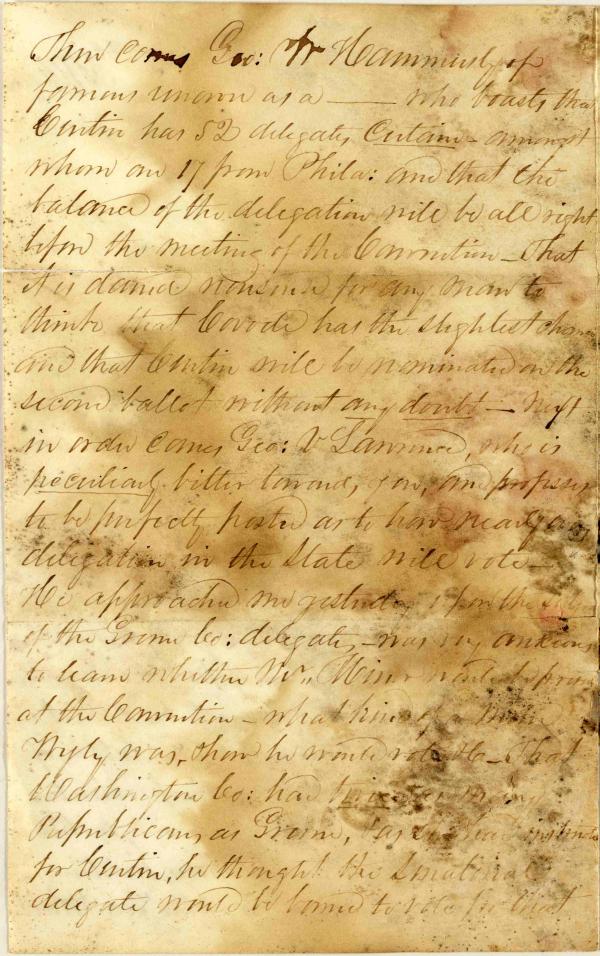 Then comes Geo: W Hammersly of
famous renown as a —— who boasts that
Curtin has 52 delegates Certain - amongst
whom are 17 from Phila: and that the
balance of the delegation will be all right
before the meeting of the Convention - That
it is damned nonsense for any man to
think that Covode has the slightest chance
and that Curtin will be nominated on the
second ballot without any doubt - Next
in order comes Geo: V Lawrence, who is
peculiarly bitter towards you, and professes
to be perfectly posted as to how nearly
delegation in the State will vote -
He approached me yesterday for the
of the Greene Co: delegates - was very anxious
to learn whether Mr. would be
at the Convention - what kind of a man
Wyly was, how he would vote - That
Washington Co: had as many
Republicans as Greene,
for Curtin, he thought the Senatorial
delegate would be bound to vote for that